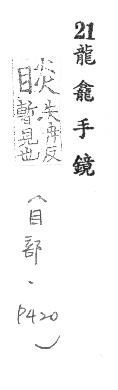 21龍龕手鏡
睒失冉反
暫見也
（目部．P420）